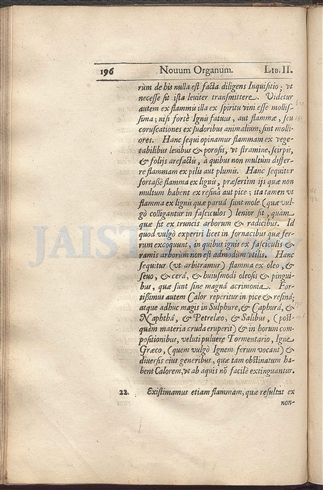 196 Nouum Organum. Lib. II.
rùm de his nulla est facta diligens Inquisitio; vt
necesse sit ista leuiter transmittere. Videtur
autem ex flammis illa ex spiritu vini esse mollis-
sima; nisi fortè Ignis fatuus, aut flammæ, seu
coruscationes ex sudoribus animalium, sint molli-
ores. Hanc sequi opinamur flammam ex vege-
tabilibus leuibus & porosis, vt stramine, scirpis,
& folijs arefactis, à quibus non multùm differ-
re flammam ex pilis aut plumis. Hanc sequitur
fortasse flamma ex lignis, præsertim ijs quæ non
multum habent ex resinâ aut pice; ita tamen vt
flamma ex lignis quæ paruâ sunt mole (quæ vul-
gò colligantur in fasciculos) lenior sit, quàm
quæ fit ex truncis arborum & radicibus. Id
quod vulgò experiri licet in fornacibus quæ fer-
rum excoquunt, in quibus ignis ex fasciculis &
ramis arborum non est admodùm vtilis. Hanc
sequitur (vt arbitramur) flamma ex oleo, &
seuo, & cerâ, & huiusmodi oleosis & pingui-
bus, quæ sunt sine magnâ acrimoniâ. For-
tissimus autem Calor reperitur in pice & resinâ;
atque adhuc magis in Sulphure, & Caphurâ, &
Naphthâ, & Petrelæo, & Salibus, (post-
quàm materia cruda eruperit) & in horum com-
positionibus, veluti puluere Tormentario, Igne
Græco, (quem vulgò Ignem ferum vocant) &
diuersis eius generibus, quæ tam obstinatum ha-
bent Calorem, vt ab aquis nõ facilè extinguantur.
22. Existimamus etiam flammam, quæ resultat ex
non-
JAIST